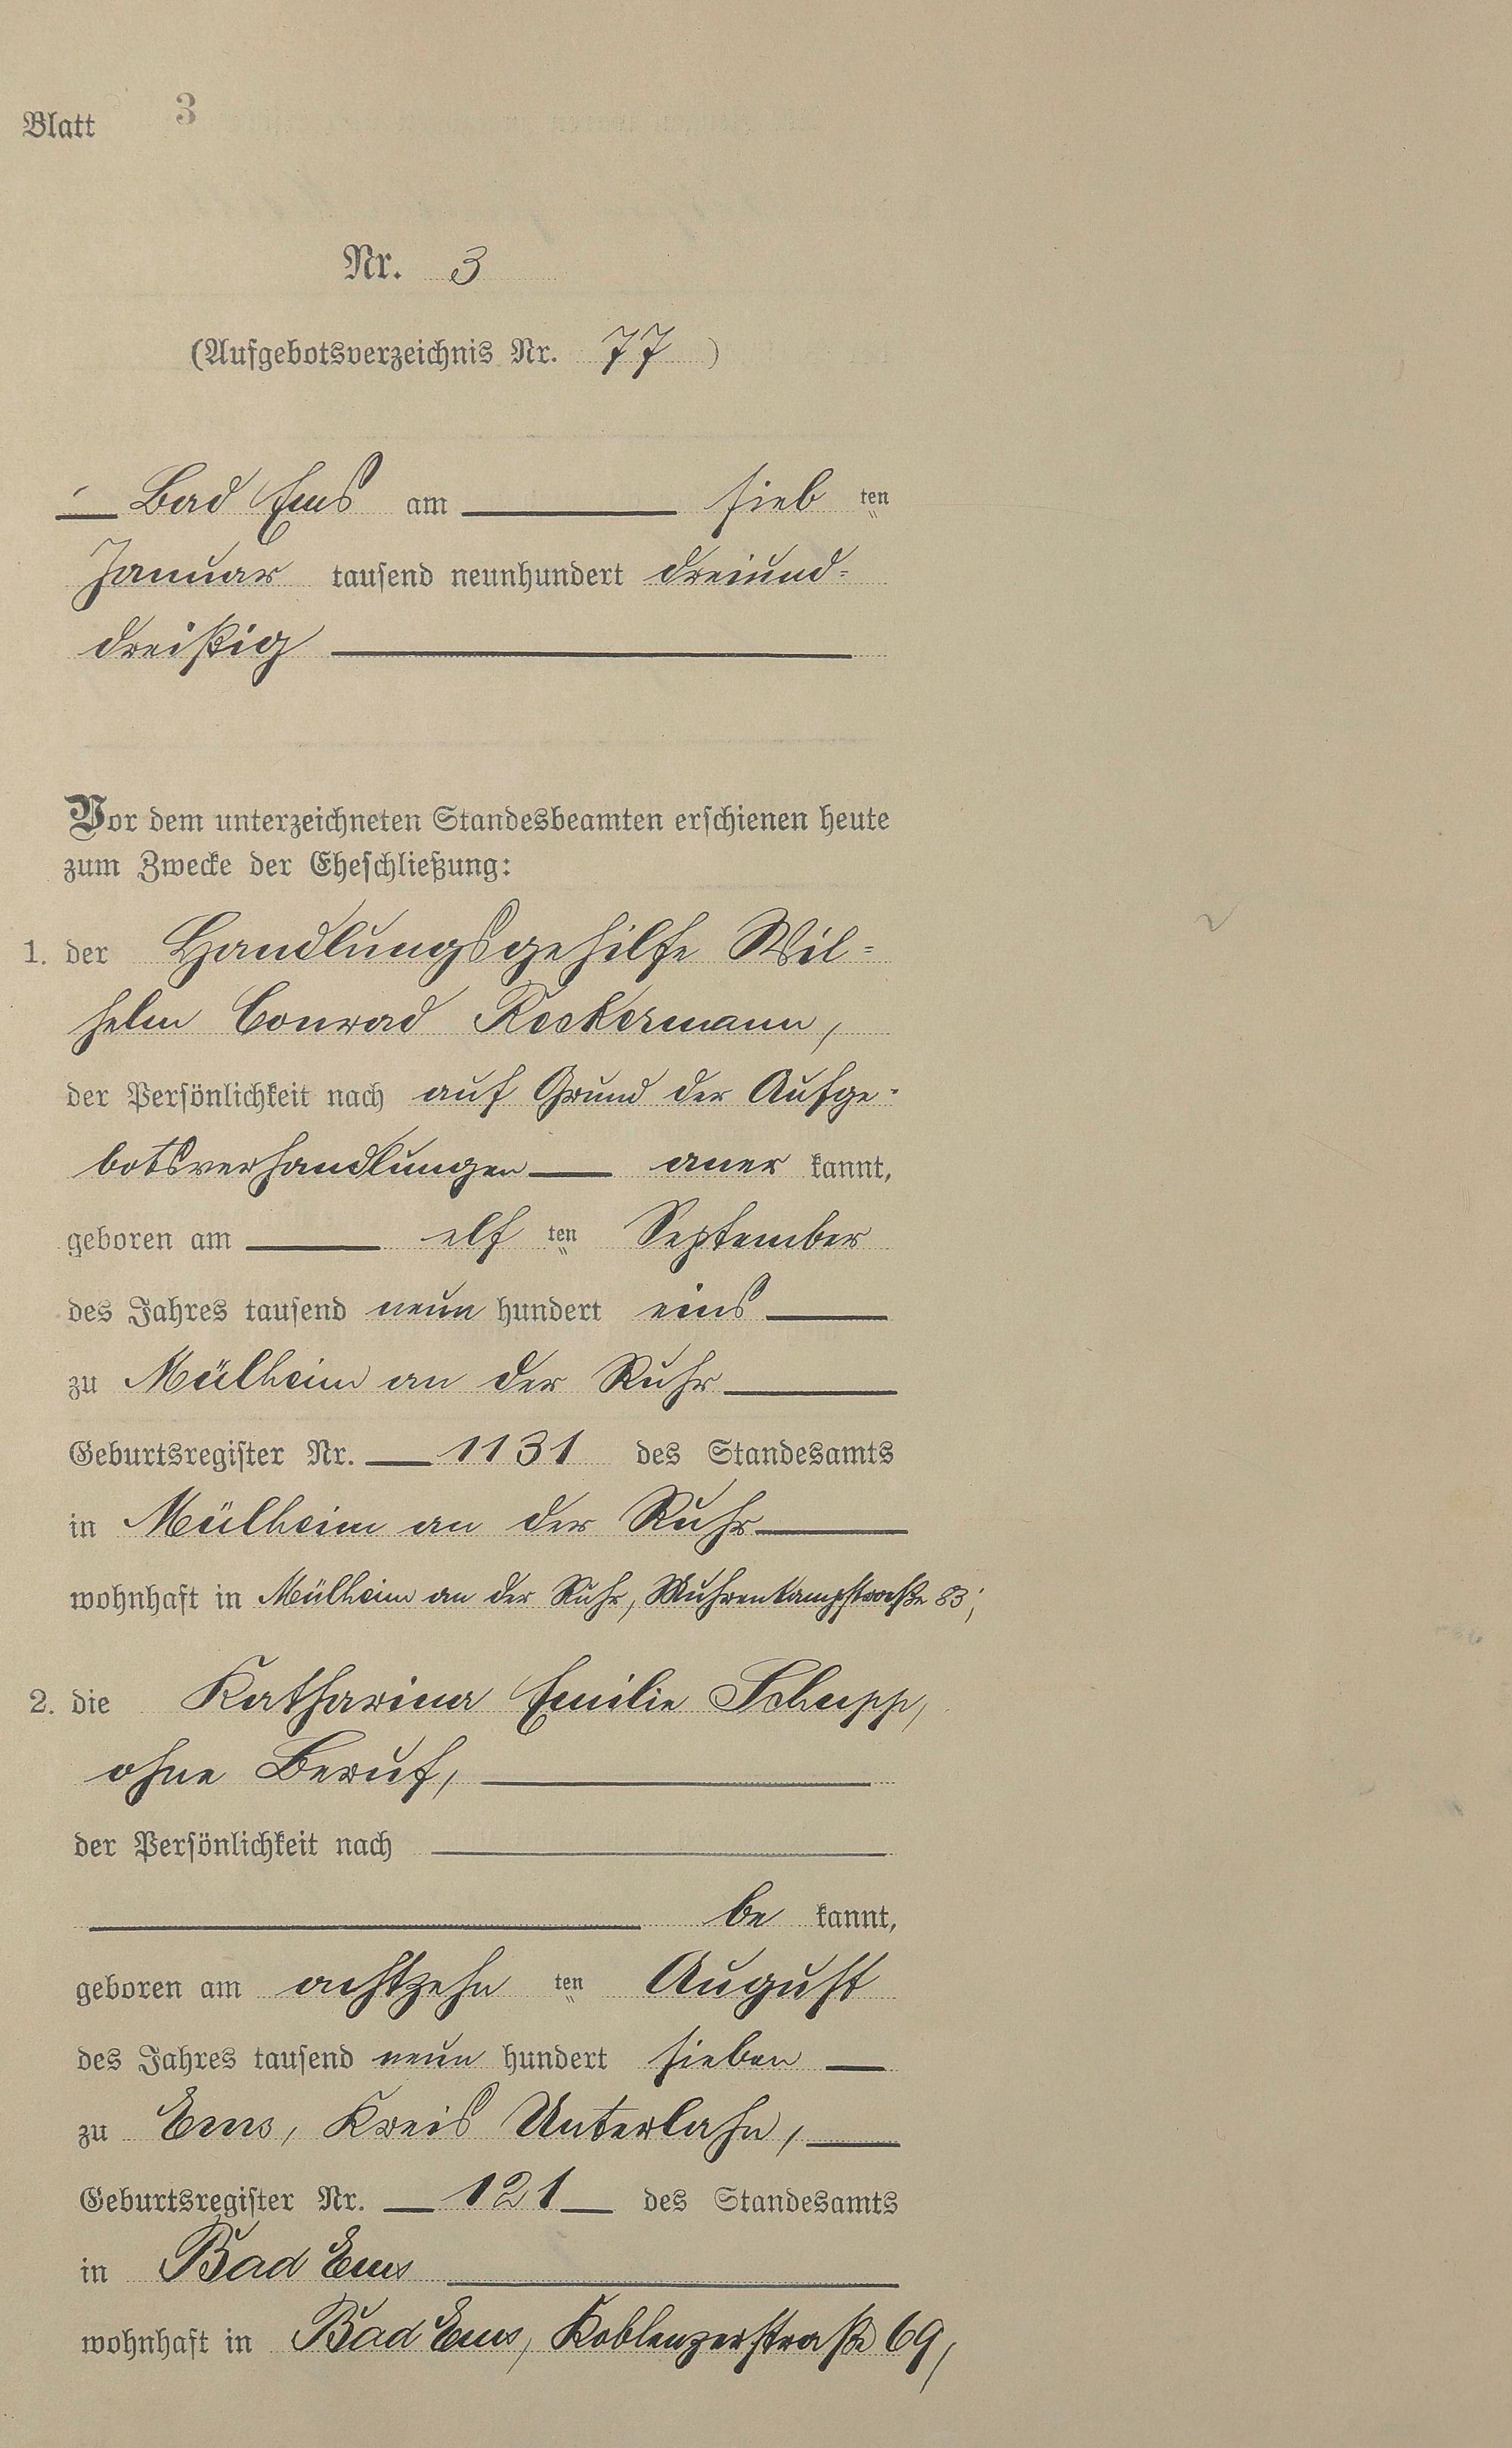 Blatt 3
Nr. 3
(Aufgebotsverzeichnis Nr. 77)
Bad Ems am sieb ten
Januar tausend neunhundert dreiund-
dreißig
Vor dem unterzeichneten Standesbeamten erschienen heute
zum Zwecke der Eheschließung:
1. der Handlungsgehilfe Wil-
helm Conrad Reckermann,
der Persönlichkeit nach auf Grund der Aufge-
botsverhandlungen aner kannt,
geboren am elf ten September
des Jahres tausend neun hundert eins
zu Mülheim an der Ruhr
Geburtsregister Nr. 1131 des Standesamts
in Mülheim an der Ruhr
wohnhaft in Mülheim an der Ruhr, Muhrenkampstraße 83;
2. die Katharina Emilie Schupp,
ohne Beruf,
der Persönlichkeit nach
be kannt,
geboren am achtzehn ten August
des Jahres tausend neun hundert sieben
zu Ems, Kreis Unterlahn,
Geburtsregister Nr. 121 des Standesamts
in Bad Ems
wohnhaft in Bad Ems, Koblenzerstraße 69,